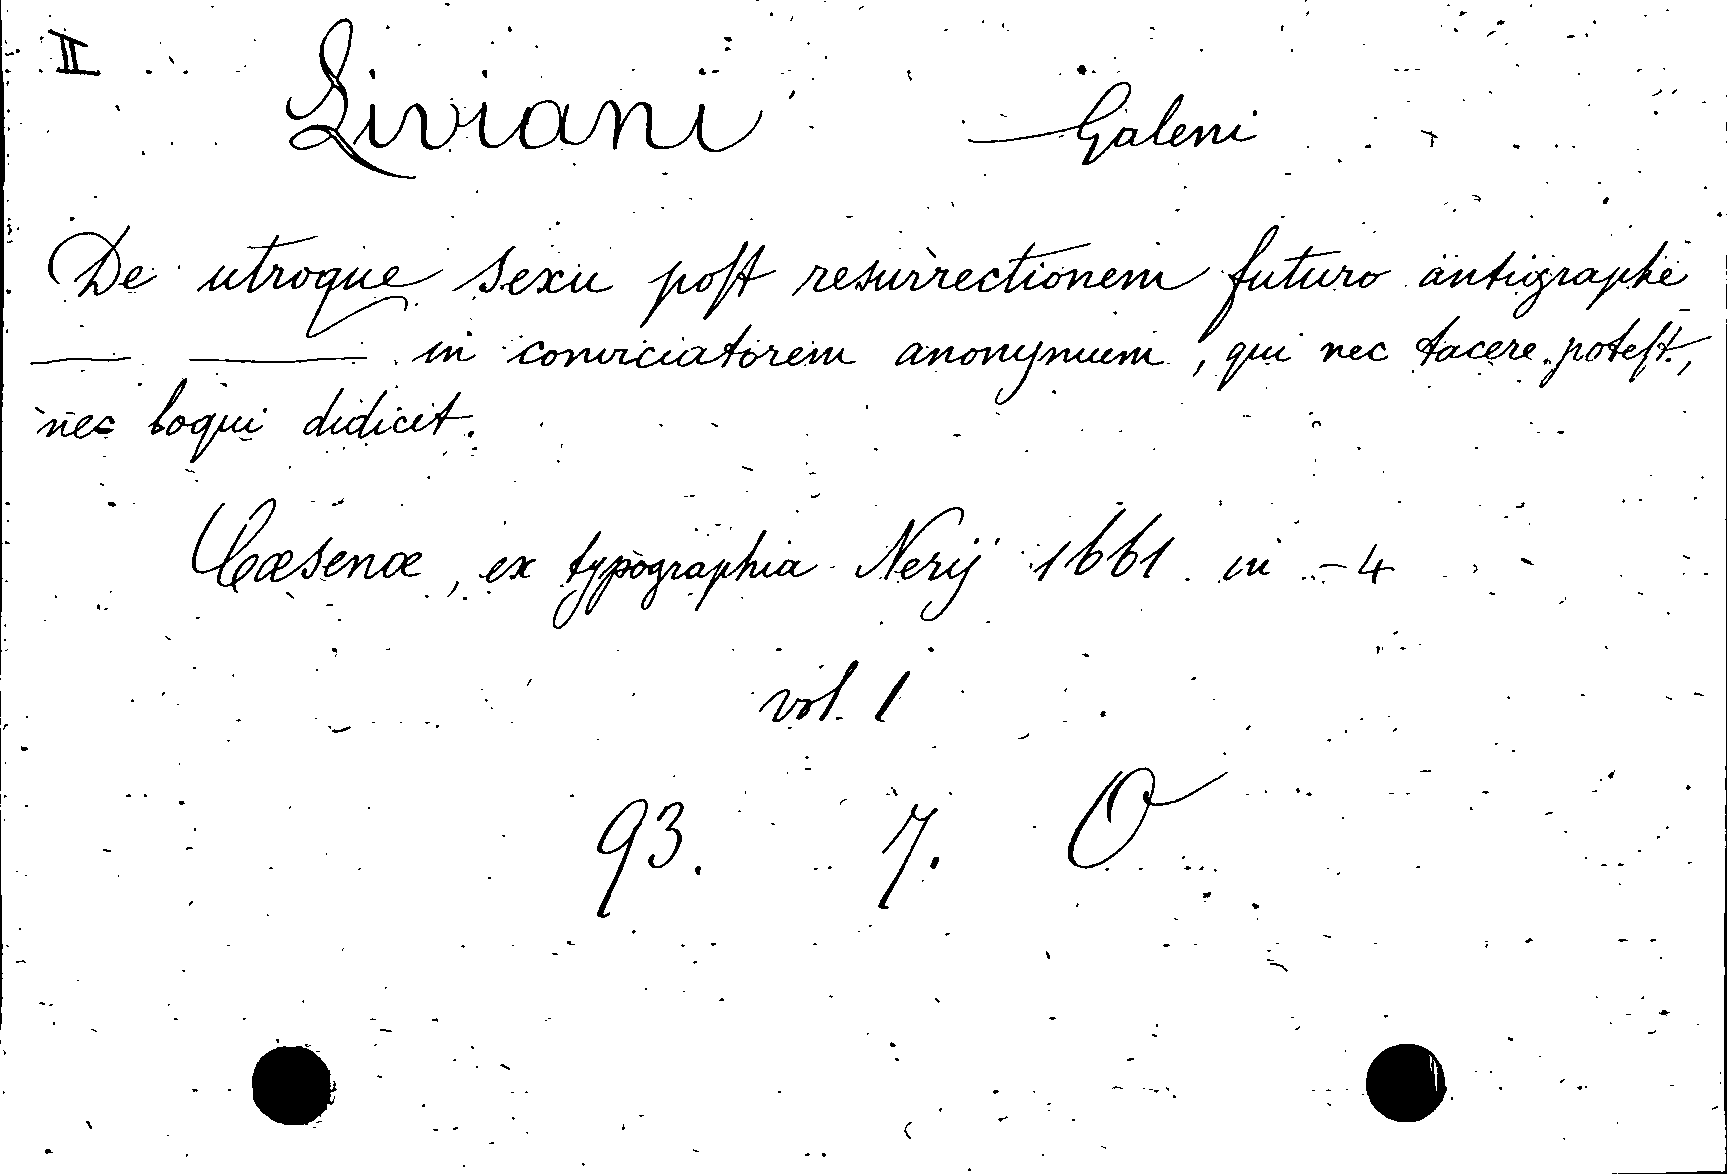 II
Liviani — Galeni
De utroque sexu poſt resurrectionem futuro antigraphe
— — in conviciatorem anonymum, qui nec tacere poteſt,
nec loqui didicit.
Cæsenæ, ex typographia Nerij 1661 in - 4
vol. 1
93. 7. O